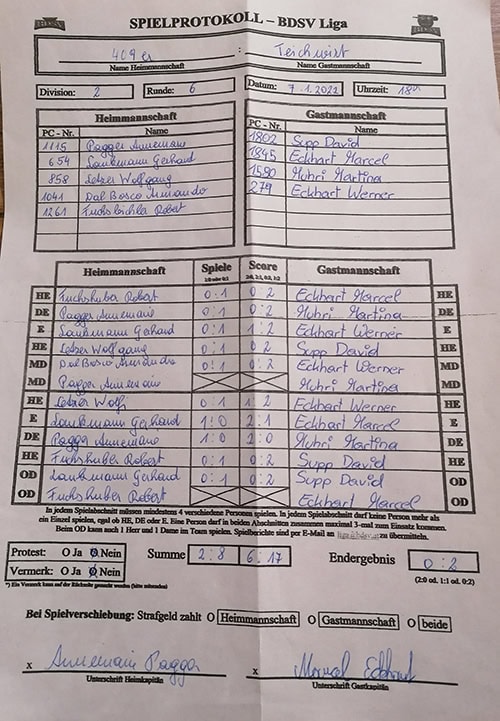 SPIELPROTOKOLL – BDSV Liga
409er : Teichwirt
Name Heimmannschaft Name Gastmannschaft
Division: 2 Runde: 6 Datum: 7.1.2022 Uhrzeit: 18h
Heimmannschaft Gastmannschaft
PC - Nr. Name PC - Nr. Name
1115 Pagger Annemarie 1802 Supp David
654 Lankmann Gerhad 1845 Eckhart Marcel
858 Letzer Wolfgang 1590 Muhri Martina
1041 Dal Bosco Armando 279 Eckhart Werner
1261 Robert
Heimmannschaft Spiele Score Gastmannschaft
1:0 oder 0:1 2:0, 2:1, 0:2, 1:2
HE Fuchshuber Robert 0:1 0:2 Eckhart Marcel HE
DE Pagger Annemarie 0:1 0:2 Muhri Martina DE
E Lankmann Gerhad 0:1 1:2 Eckhart Werner E
HE Letzer Wolfgang 0:1 0:2 Supp David HE
MD Dal Bosco Armando 0:1 0:2 Eckhart Werner MD
MD Pagger Annemarie Muhri Martina MD
HE Letzer Wolfg 0:1 1:2 Eckhart Werner HE
E Lankmann Gerhad 1:0 2:1 Eckhart Marcel E
DE Pagger Annemarie 1:0 2:0 Muhri Martina DE
HE Fuchshuber Robert 0:1 0:2 Supp David HE
OD Lankmann Gerhad 0:1 0:2 Supp David OD
OD Fuchshuber Robert Eckhart Marcel OD
In jedem Spielabschnitt müssen mindestens 4 verschiedene Personen spielen. In jedem Spielabschnitt darf keine Person mehr als
ein Einzel spielen, egal ob HE, DE oder E. Eine Person darf in beiden Abschnitten zusammen maximal 3-mal zum Einsatz kommen.
Beim OD kann auch 1 Herr und 1 Dame im Team spielen. Spielberichte sind per E-Mail an liga@bdsv.at zu übermitteln.
Protest: O Ja O Nein Summe 2:8 6:17 Endergebnis 0:2
Vermerk: O Ja O Nein (2:0 od. 1:1 od. 0:2)
*) Ein Vermerk kann auf der Rückseite gemacht werden (bitte mitsenden)
Bei Spielverschiebung: Strafgeld zahlt O Heimmannschaft O Gastmannschaft O beide
x Annemarie Pagger x Marcel Eckhart
Unterschrift Heimkapitän Unterschrift Gastkapitän